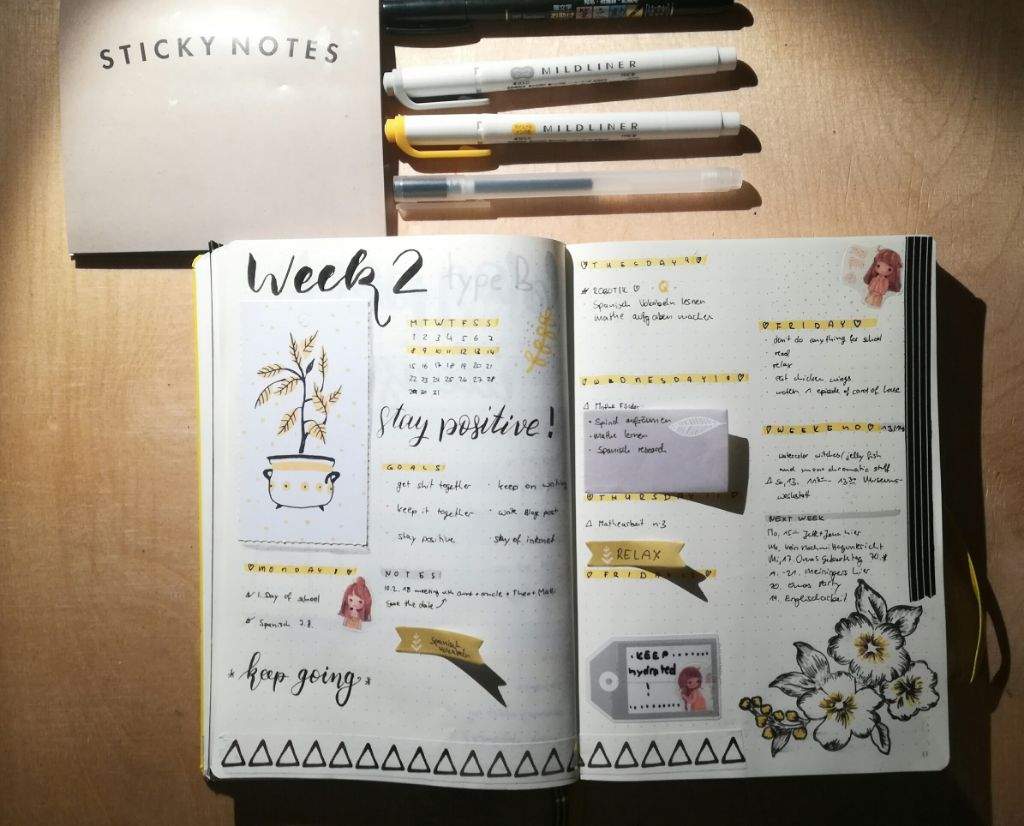 STICKY NOTES
MILDLINER
MILDLINER
Week 2
MTWTFSS
1 2 3 4 5 6 7
8 9 10 11 12 13 14
15 16 17 18 19 20 21
22 23 24 25 26 27 28
29 30 31
stay positive!
GOALS
get shit together
keep it together
stay positive
• keep on
• write Blog post
stay of internet
MONDAY 8
1. Day of school
Spanisch
NOTES
10.2. 18 meeting with + oncle +
Save the date
Spanisch
*keep going*
TUESDAY 9
ROBOTIK
Spanisch Vokabeln lernen
mathe aufgaben machen
WEDNESDAY 10
Mathe
• Spind aufräumen
• mathe lernen
• Spanisch research
THURSDAY 11
Mathearbeit n°3
RELAX
FRIDAY
• KEEP
hydrated
!
FRIDAY
• don't do anything for school
• read
relax
chicken wings
• watch 1 episode of
WEEKEND 13/14
watercolor witches/jelly fish
and monochromatic stuff
So, 13. Museums-
werkstatt
NEXT WEEK
Mo, 15. hier
kein Nachmittagsunterricht
Mi, 17. Omas Geburtstag
- 21. hier
20. Omas Party
19. Englischarbeit